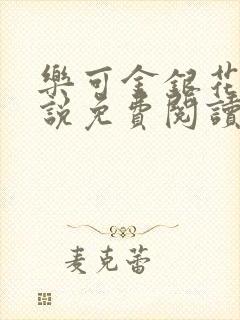 樂可金銀花
說免費閱讀
麦克蕾